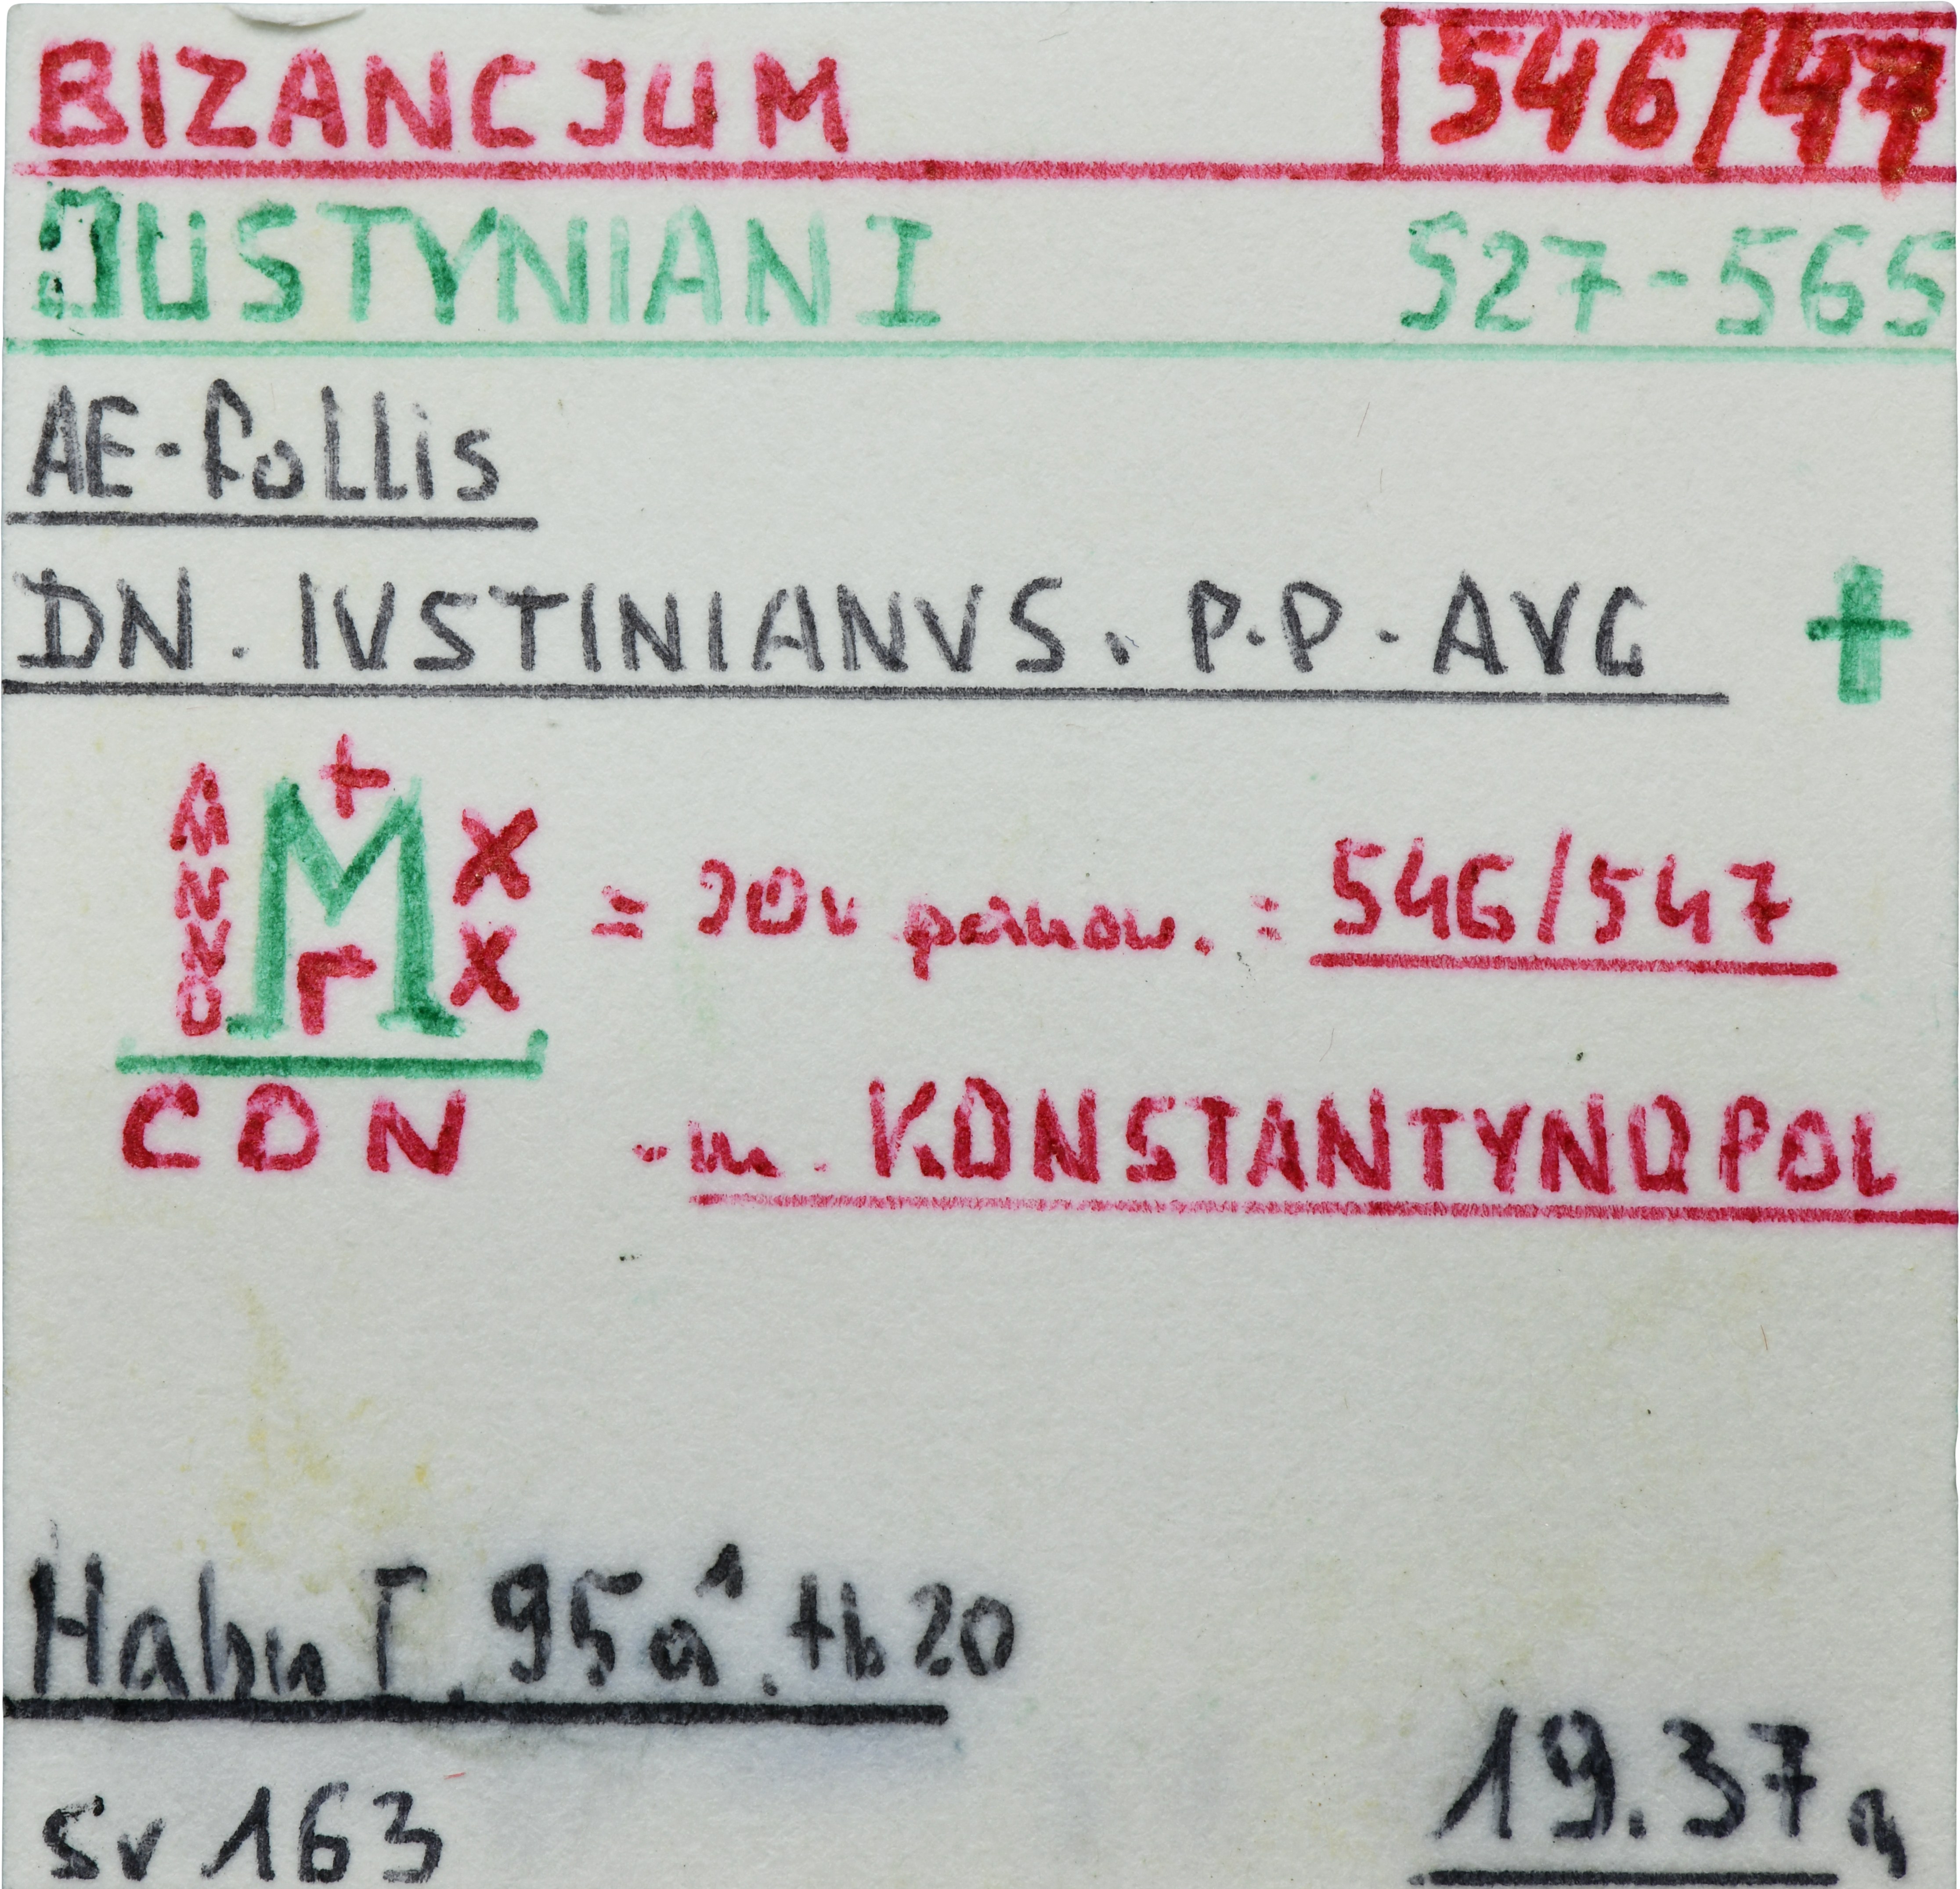 BIZANCJUM 546/47
JUSTYNIAN I 527-565
AE-follis
DN. IVSTINIANVS. P.P. AVG †
+
ANNO M X X = 20 v panow. = 546/547
Γ
CON - m. KONSTANTYNOPOL
Hahn I. 95a¹. tb 20
19.37 g
SV 163